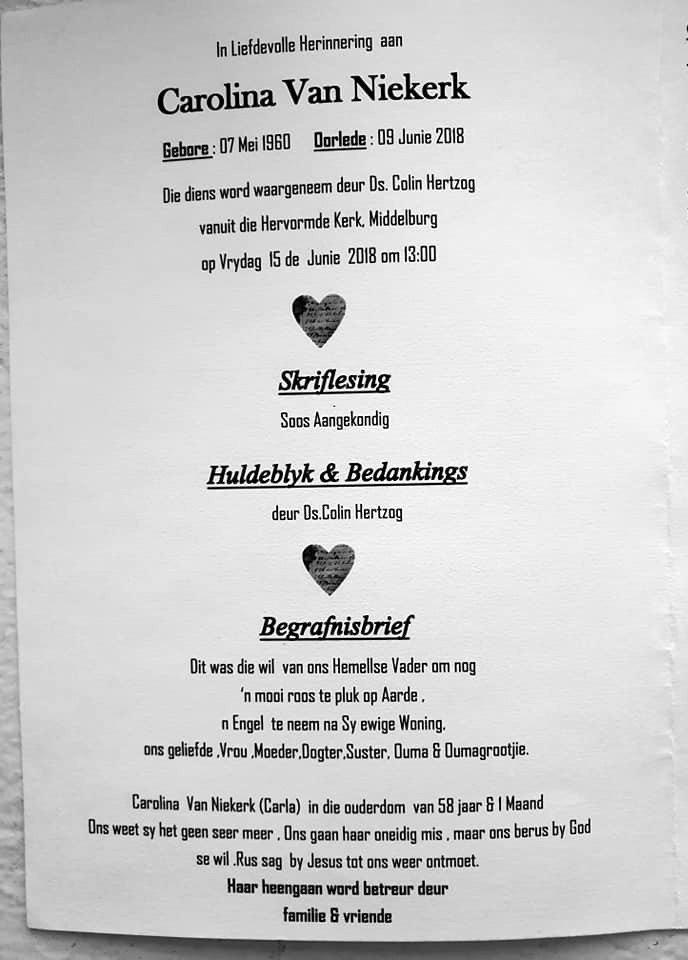 In Liefdevolle Herinnering aan
Carolina Van Niekerk
Gebore : 07 Mei 1960 Oorlede : 09 Junie 2018
Die diens word waargeneem deur Ds. Colin Hertzog
vanuit die Hervormde Kerk, Middelburg
op Vrydag 15 de Junie 2018 om 13:00
Skriflesing
Soos Aangekondig
Huldeblyk & Bedankings
deur Ds.Colin Hertzog
Begrafnisbrief
Dit was die wil van ons Hemellse Vader om nog
'n mooi roos te pluk op Aarde ,
n Engel te neem na Sy ewige Woning,
ons geliefde ,Vrou ,Moeder,Dogter,Suster, Ouma & Oumagrootjie.
Carolina Van Niekerk (Carla) in die ouderdom van 58 jaar & 1 Maand
Ons weet sy het geen seer meer , Ons gaan haar oneidig mis , maar ons berus by God
se wil .Rus sag by Jesus tot ons weer ontmoet.
Haar heengaan word betreur deur
familie & vriende